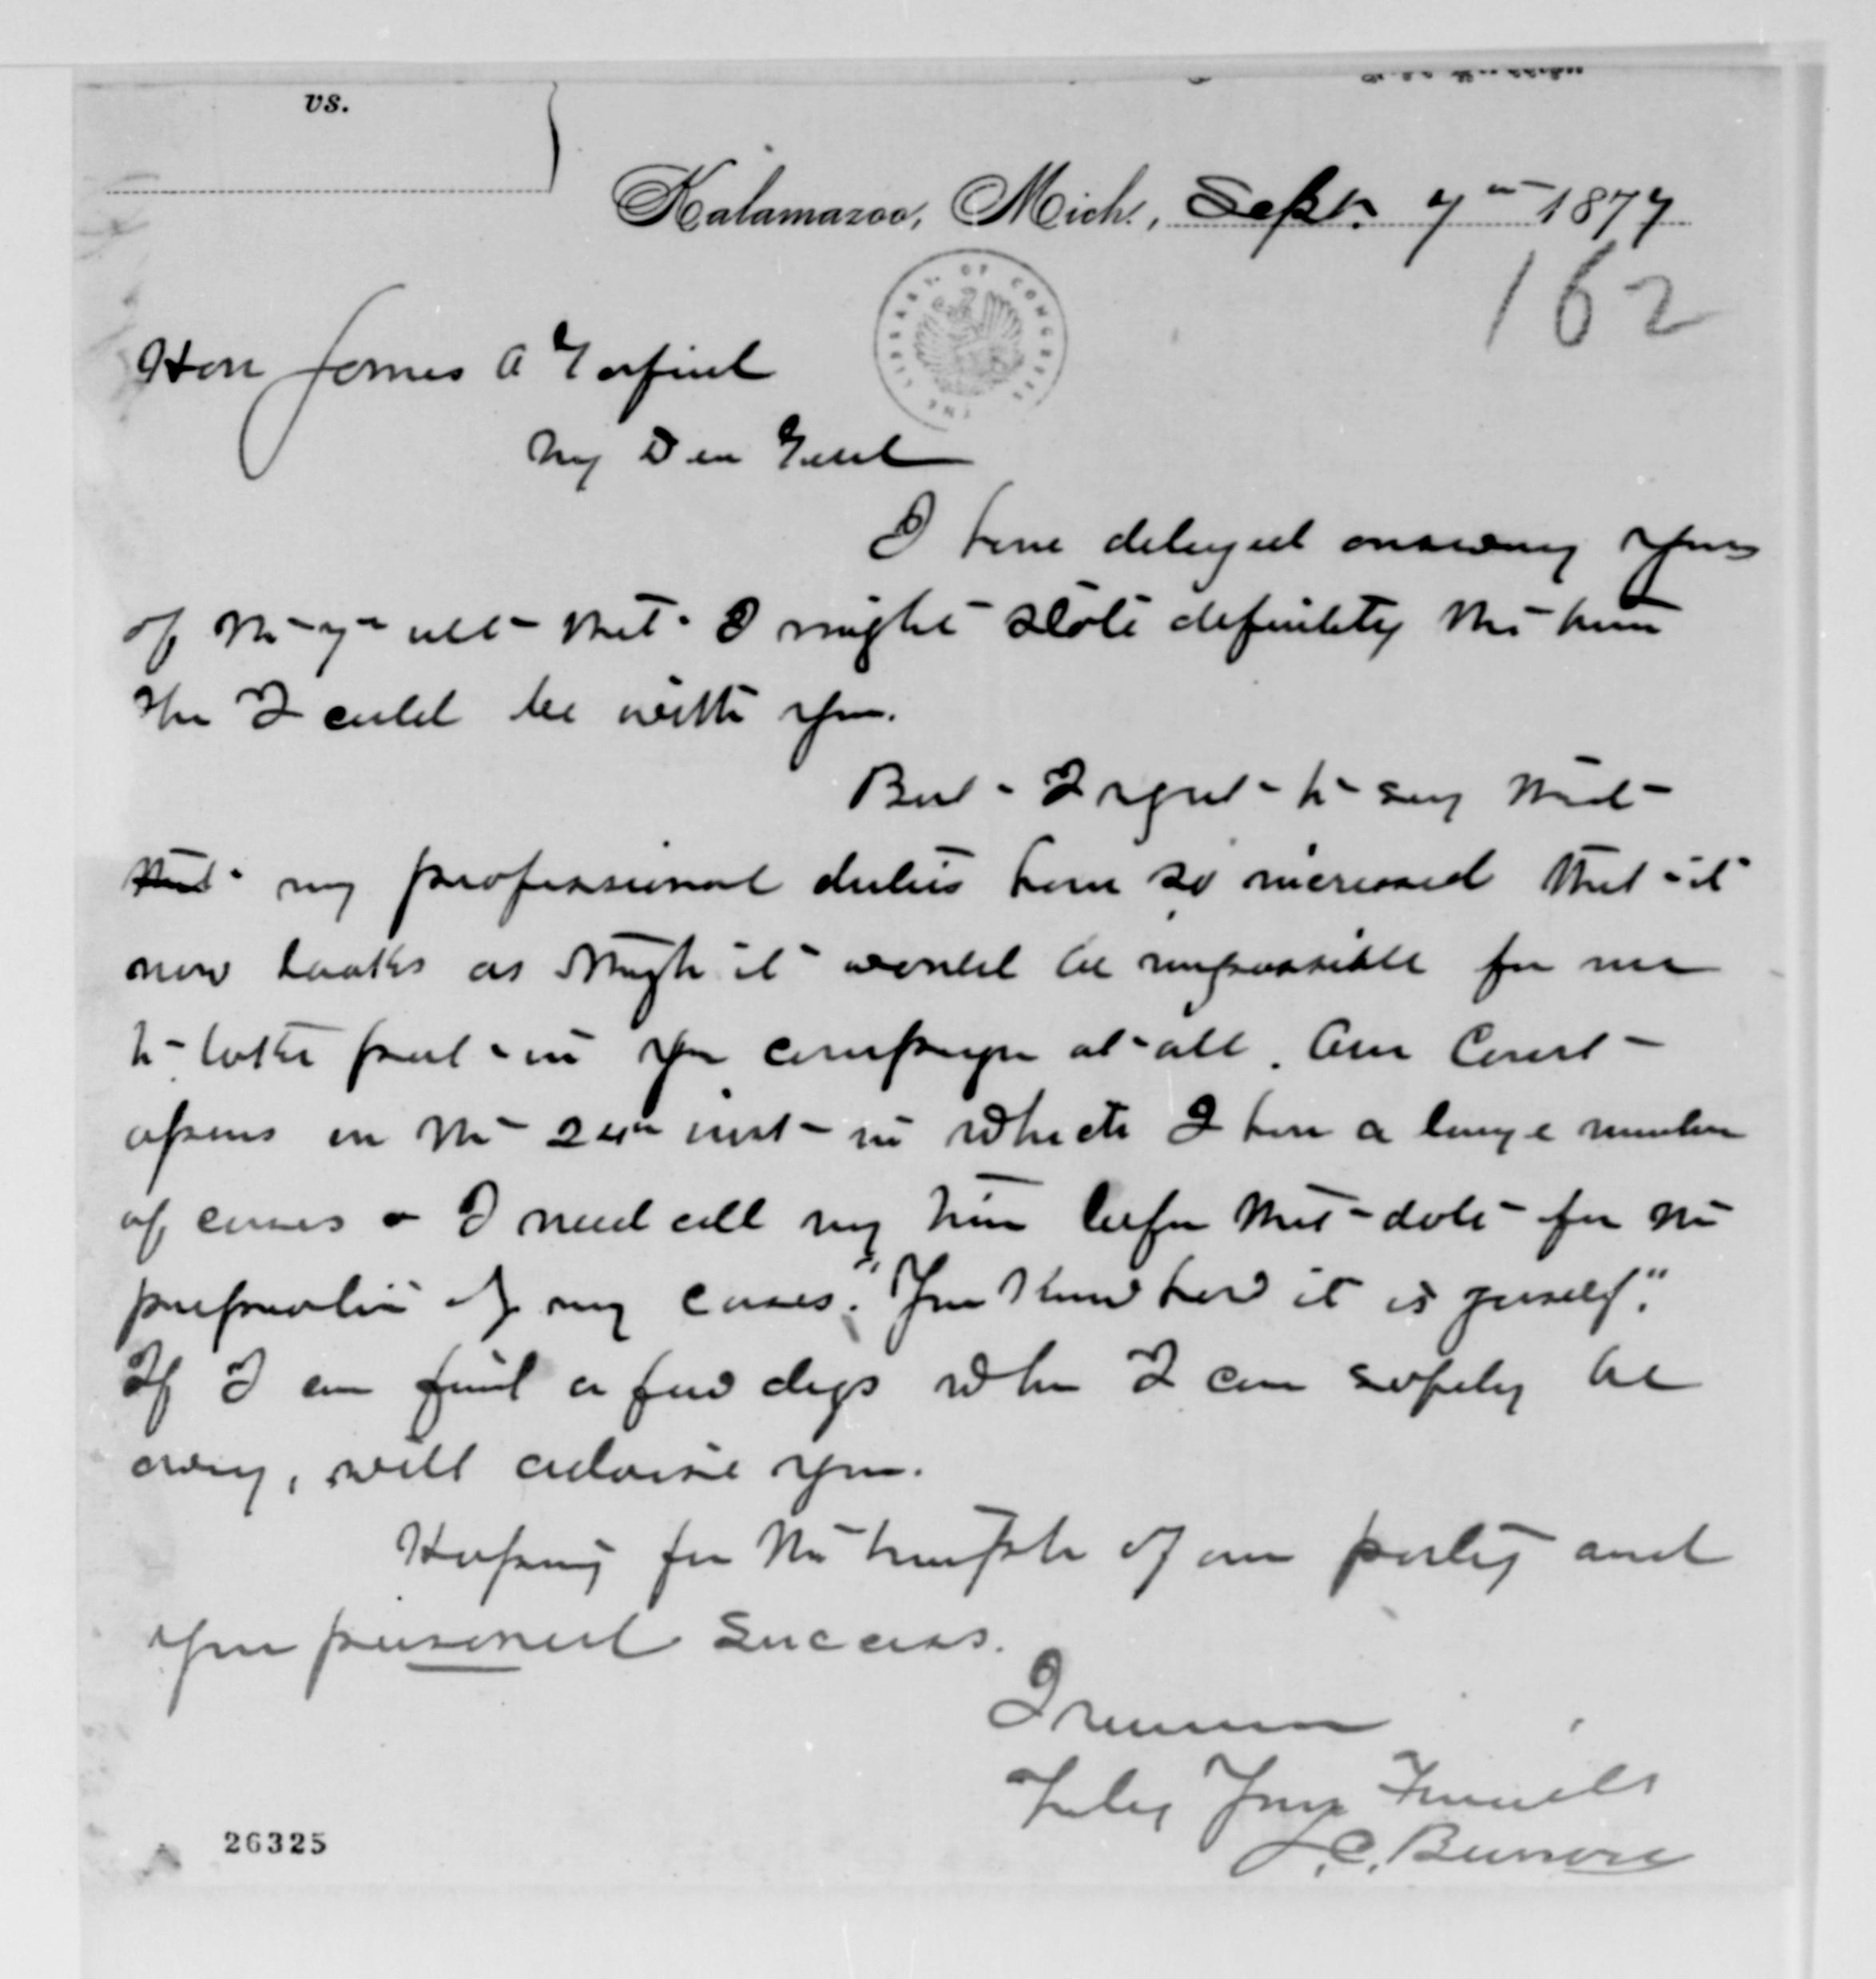 vs.
Kalamazoo, Mich., Sept. 7th 1877
162
THE LIBRARY OF CONGRESS
Hon James A Garfield
My Dear Genl
I have delayed answering yours
of the 7th ult that I might state definitely the time
when I could be with you.
But I regret to say that
that my professional duties have so increased that it
now looks as though it would be impossible for me
to take part in your campaign at all. Our Court
opens on the 24th inst in which I have a large number
of causes & I need all my time before that date for the
preparation of my cases. "You know how it is yourself."
If I can find a few days when I can safely be
away, will advise you.
Hoping for the triumph of our party and
your personal success.
I remain
Truly Your Friend
J. C. Burrows
26325